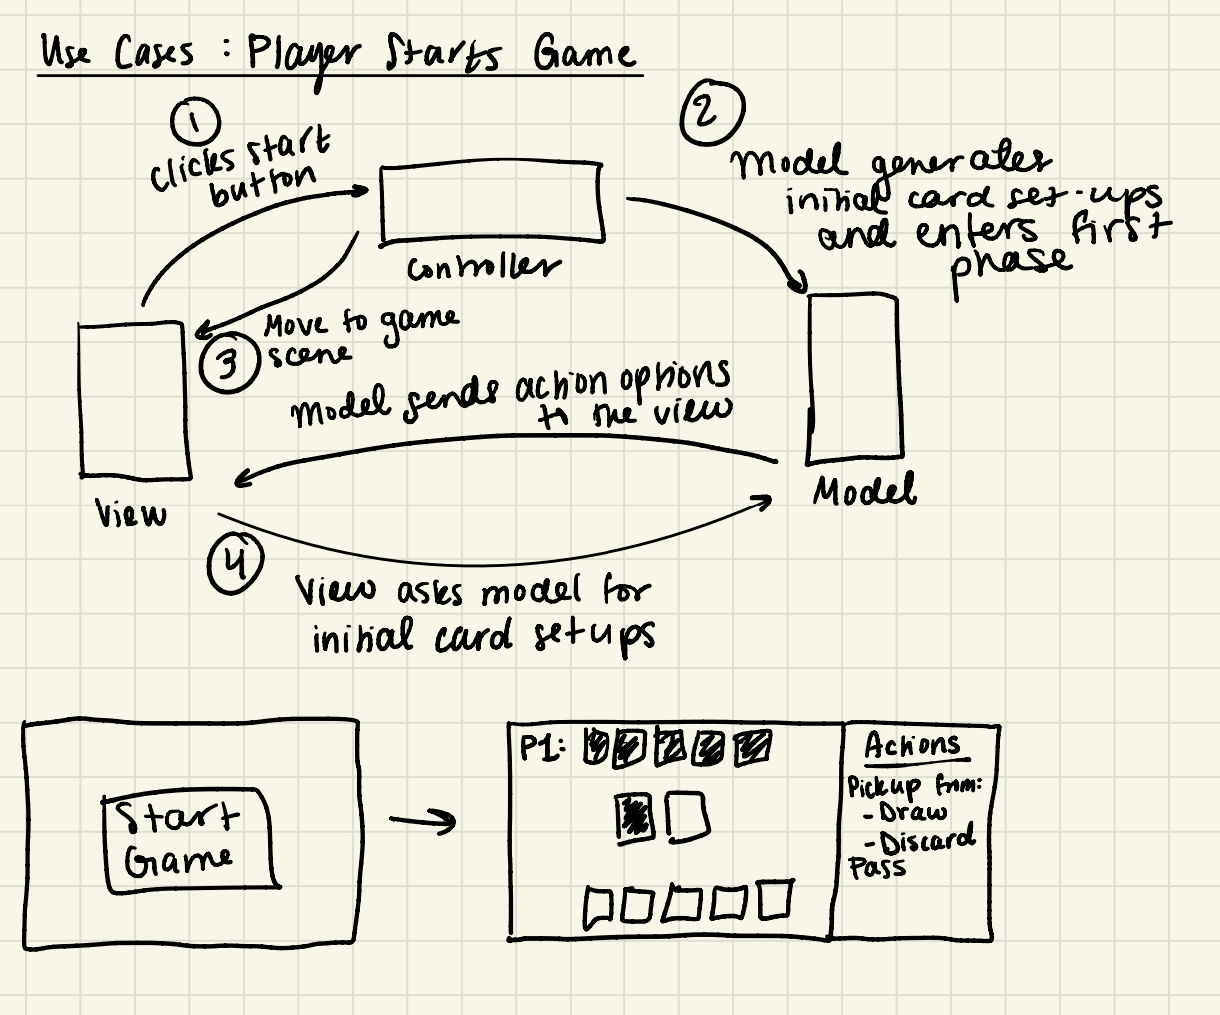 Use Cases : Player Starts Game
1
clicks start
button
2
Model generates
initial card set-ups
and enters first
phase
controller
3
Move to game
scene
Model sends action options
to the view
View
Model
4
View asks model for
initial card setups
Start
Game
P1:
Actions
Pickup from:
- Draw
- Discard
Pass